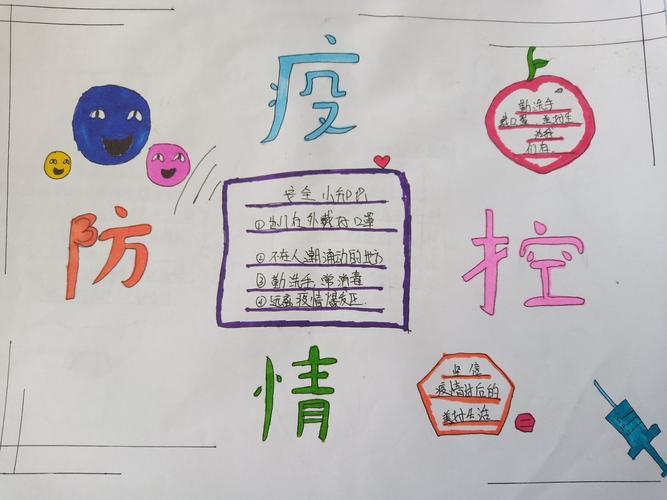 疫
勤洗手
们在
防
安全小知识
①出门在外戴好口罩
②不在人潮涌动的地方
③勤洗手,常消毒
④远离疫情爆发区.
控
情
坚信
疫情过后的
美好生活